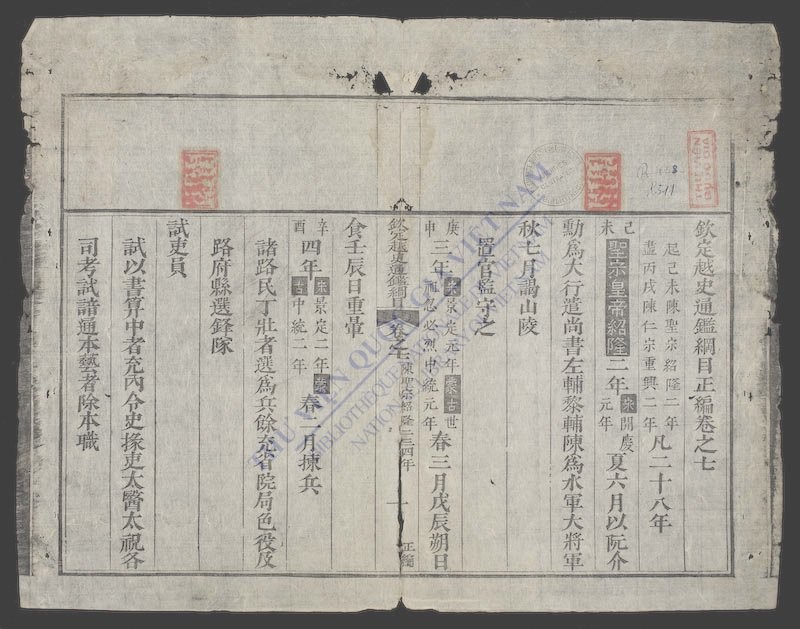 欽定越史通鑑綱目正編卷之七
起己未陳聖宗紹隆二年
盡丙戌陳仁宗重興二年
凡二十八年
己未
聖宗皇帝紹隆二年
宋開慶元年
夏六月以阮介
勳爲大行遣尚書左輔黎輔陳爲水軍大將軍
秋七月謁山陵
置官監守之
庚申
三年
宋景定元年蒙古世
祖忽必烈中統元年
春三月戊辰朔日
欽定越史通鑑綱目
卷之七
陳聖宗紹隆二三四年
一
正編
食壬辰日重暈
辛酉
四年
宋景定二年蒙
古中統二年
春二月揀兵
諸路民丁壯者選爲兵餘充省院局色役及
路府縣選鋒隊
試吏員
試以書算中者充内令史掾吏太醫太祝各
司考試諳通本藝者除本職
THƯ VIỆN QUỐC GIA VIỆT NAM
BIBLIOTHÈQUE NATIONALE DU VIETNAM
NATIONAL LIBRARY OF VIETNAM